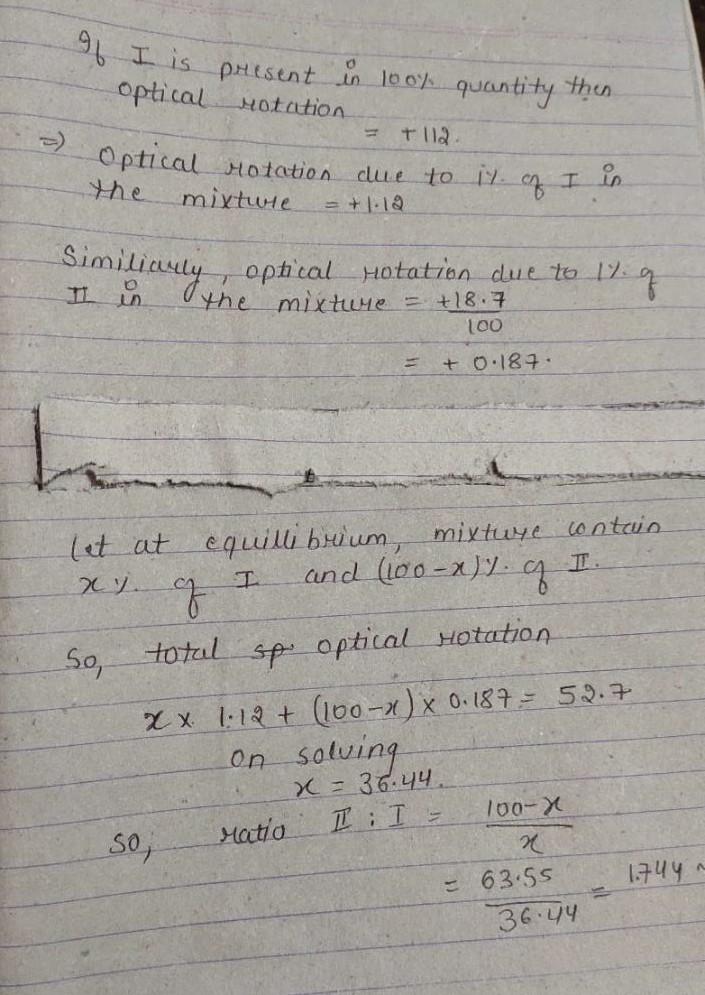 If I is present in 100% quantity then
optical rotation
= +112.
⇒ Optical rotation due to 1% of I in
the mixture = +1.12
Similiarly, optical rotation due to 1% of
II in the mixture = +18.7
100
= + 0.187.
Let at equillibrium, mixture contain
x % of I and (100-x)% of II.
So, total sp optical rotation
x × 1.12 + (100-x) × 0.187 = 52.7
on solving
x = 36.44.
So, ratio II : I = 100-x
x
= 63.55 = 1.744
36.44